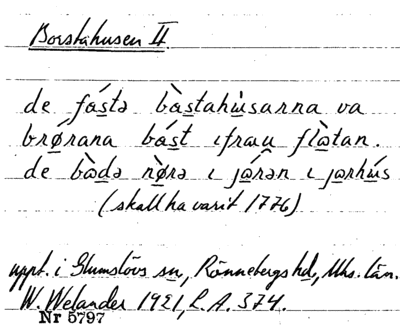 Borstahusen II.
de fá̱stə bà̱stahu̱̇sarna va
brǿ̱rana bá̱st ıfrau flà̱tan.
de bà̱də nø̱̀rə ı jǿ̱rən ı jø̱rhú̱s
(skall ha varit 1776)
uppt. i Glumslövs sn, Rönnebergs hd, Mhs. län.
W. Welander 1921, L.A. 374.
Nr 5797